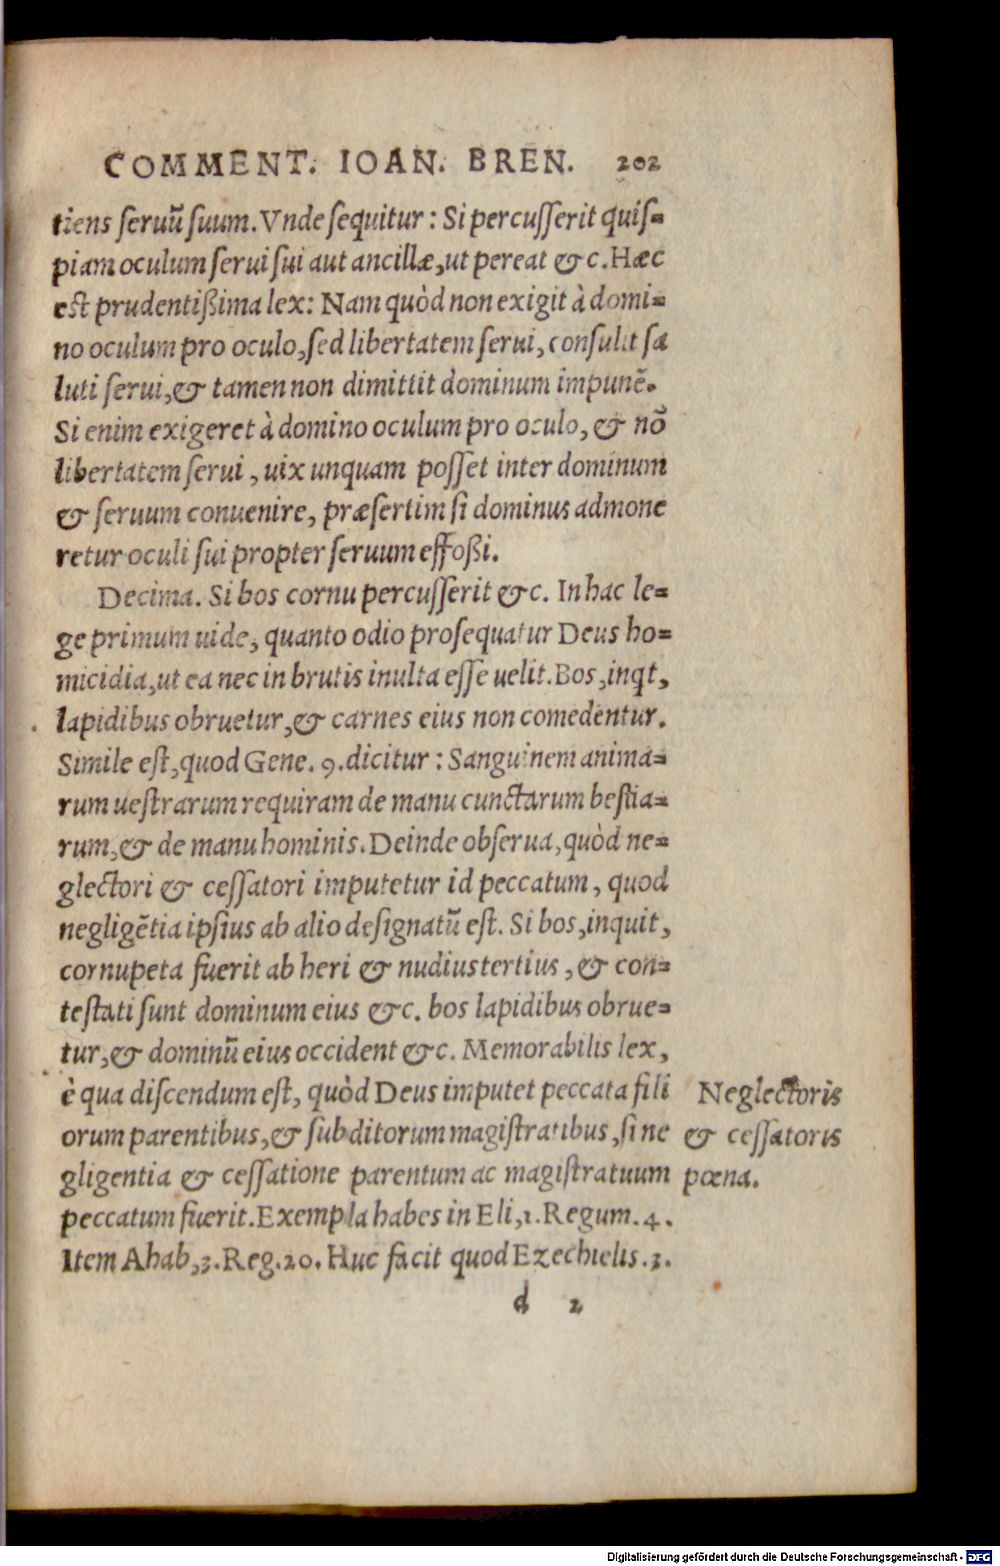 COMMENT. IOAN. BREN. 202
tiens seruū suum. Vnde sequitur: Si percusserit quis-
piam oculum serui sui aut ancillæ, ut pereat &c. Hæc
est prudentißima lex: Nam quòd non exigit à domi-
no oculum pro oculo, sed libertatem serui, consulit sa
luti serui, & tamen non dimittit dominum impunē.
Si enim exigeret à domino oculum pro oculo, & nō
libertatem serui, uix unquam posset inter dominum
& seruum conuenire, præsertim si dominus admone
retur oculi sui propter seruum effoßi.
Decima. Si bos cornu percusserit &c. In hac le-
ge primum uide, quanto odio prosequatur Deus ho-
micidia, ut ea nec in brutis inulta esse uelit. Bos, inqt,
lapidibus obruetur, & carnes eius non comedentur.
Simile est, quod Gene. 9. dicitur: Sanguinem anima-
rum uestrarum requiram de manu cunctarum bestia-
rum, & de manu hominis. Deinde obserua, quòd ne-
glectori & cessatori imputetur id peccatum, quod
negligētia ipsius ab alio designatū est. Si bos, inquit,
cornupeta fuerit ab heri & nudiustertius, & con-
testati sunt dominum eius &c. bos lapidibus obrue-
tur, & dominū eius occident &c. Memorabilis lex,
è qua discendum est, quòd Deus imputet peccata fili
orum parentibus, & subditorum magistratibus, si ne
gligentia & cessatione parentum ac magistratuum
peccatum fuerit. Exempla habes in Eli, 1. Regum. 4.
Item Ahab, 3. Reg. 20. Huc facit quod Ezechielis. 3.
Neglectoris
& cessatoris
pœna.
d 2
Digitalisierung gefördert durch die Deutsche Forschungsgemeinschaft - DFG